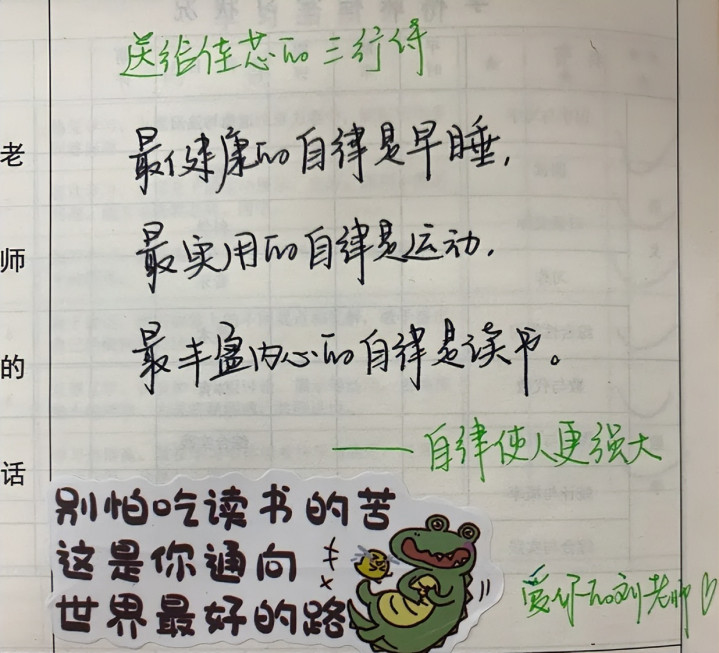 送给佳芯的三行诗
老师的话
最健康的自律是早睡，
最实用的自律是运动，
最丰盈内心的自律是读书。
——自律使人更强大
别怕吃读书的苦
这是你通向
世界最好的路
爱你的刘老师